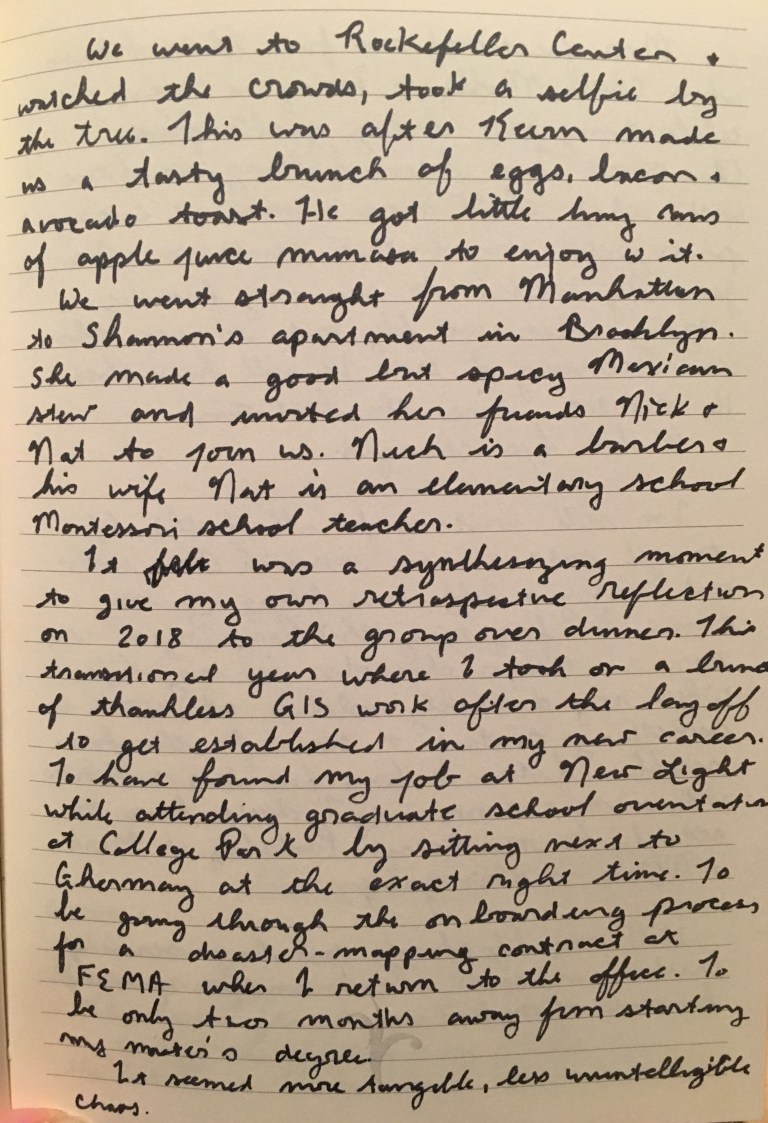 We went to Rockefeller Center +
watched the crowds, took a selfie by
the tree. This was after Kevin made
us a tasty brunch of eggs, bacon +
avocado toast. He got little
of apple juice mimosa to enjoy w it.
We went straight from Manhattan
to Shannon's apartment in Brooklyn.
She made a good but spicy Mexican
stew and invited her friends Nick +
Nat to join us. Nick is a barber +
his wife Nat is an elementary school
Montessori school teacher.
It was a synthesizing moment
to give my own retrospective reflection
on 2018 to the group over dinner. This
transitional year where I took on a
of thankless GIS work after the layoff
to get established in my new career.
To have found my job at New Light
while attending graduate school orientation
at College Park by sitting next to
Ghermay at the exact right time. To
be going through the onboarding process
for a disaster-mapping contract at
FEMA when I return to the office. To
be only two months away from starting
my master's degree.
It seemed more tangible, less unintelligible
chaos.